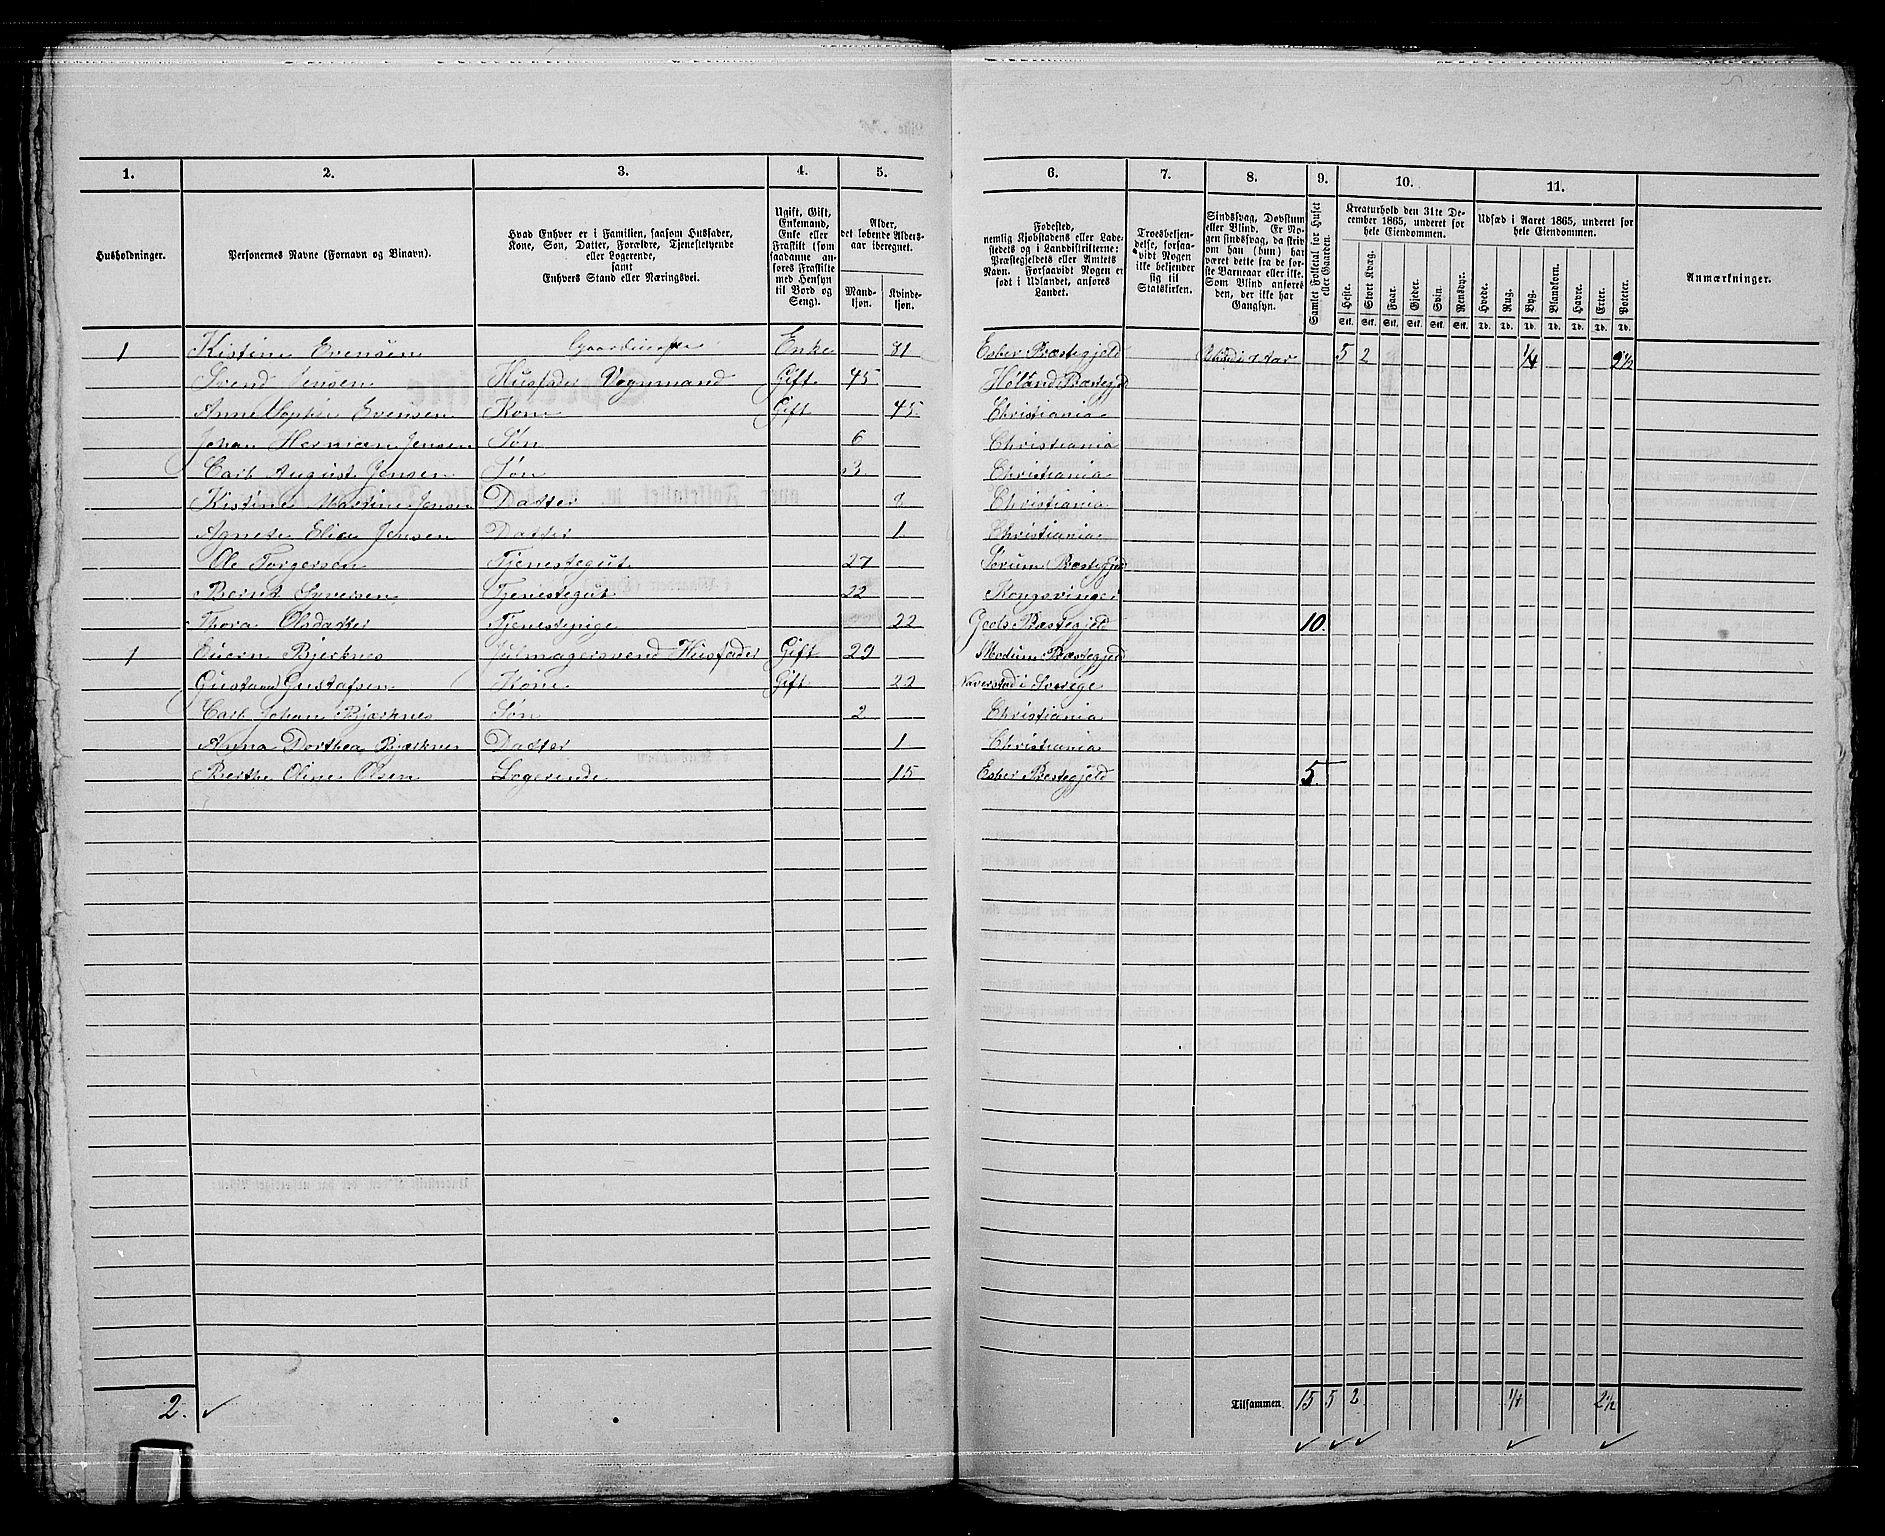 1. 2. 3. 4. 5. 6. 7. 8. 9. 10. 11.
Husholdninger.
Personernes Navne (Fornavn og Binavn).
Hvad Enhver er i Familien, saasom Husfader, Kone, Søn, Datter, Forældre, Tjenestetyende eller Logerende, samt Enhvers Stand eller Næringsvei.
Ugift, Gift, Enkemand, Enke eller Fraskilt (som saadanne anføres Fraskilte med Hensyn til Bord og Seng).
Alder, det løbende Aldersaar iberegnet.
Mandkjøn. Kvindekjøn.
Fødested, nemlig Kjøbstadens eller Ladestedets og i Landdistrikterne: Præstegjeldets eller Amtets Navn. Forsaavidt Nogen er født i Udlandet, anføres Landet.
Troesbekjendelse, forsaavidt Nogen ikke bekjender sig til Statskirken.
Sindssvag, Døvstum eller Blind. Er Nogen sindssvag, da skriv om han (hun) har været dette fra de første Barneaar eller ikke. Som Blind anføres den, der ikke har Gangsyn.
Samlet Folketal for Huset eller Gaarden.
Kreaturhold den 31te December 1865, underet for hele Eiendommen.
Heste. Stort Kvæg. Faar. Gjeder. Svin. Rensdyr.
Stk. Stk. Stk. Stk. Stk. Stk.
Udsæd i Aaret 1865, underet for hele Eiendommen.
Hvede. Rug. Byg. Blandkorn. Havre. Erter. Poteter.
Td. Td. Td. Td. Td. Td. Td.
Anmærkninger.
1 Kistine Evensen Enke 81 Præstegjeld 5 2 1/4 2 1/2
Svend Jensen Husfader Vognmand Gift 45 Høland Præstegjd
Anne Sophie Evensen Kone Gift 45 Christiania
Johan Herman Jensen Søn 6 Christiania
Carl August Jensen Søn 3 Christiania
Kistine Martine Jensen Datter 8 Christiania
Agnete Elise Jensen Datter 1 Christiania
Ole Torgersen Tjenestegut 27 Sørum Præstegjeld
Bernt Syversen Tjenestegut 22 Kongsvinger
Thora Olsdatter Tjenestepige 22 Præstegjeld 10.
1 Bjerknes Husfader Gift 29 Modum Præstegjeld
Gustava Gustafsen Kone Gift 22 i Sverige
Carl Johan Bjerknes Søn 2 Christiania
Anna Dorthea Bjerknes Datter 1 Christiania
Berthe Oline Olsen Logerende 15 Præstegjeld 5
2. Tilsammen. 15 5 2 1/4 2 1/2